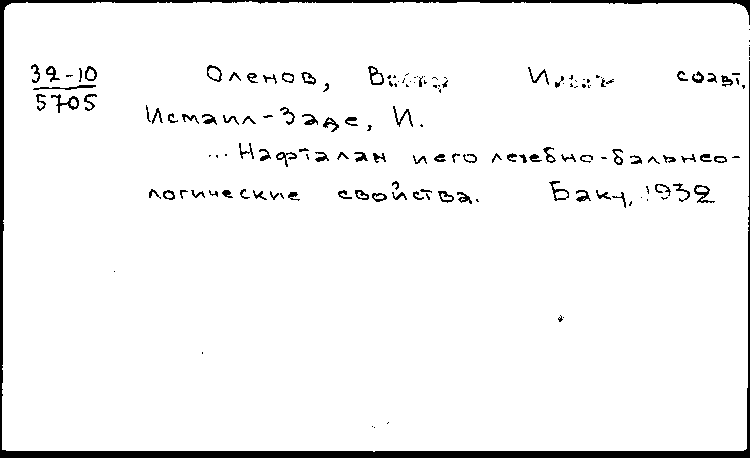 32-10
5705
Оленов, соавт.
Исмаил-Заде, И.
... Нафталан и его лечебно-бальнео-
логические свойства. Баку, 1932